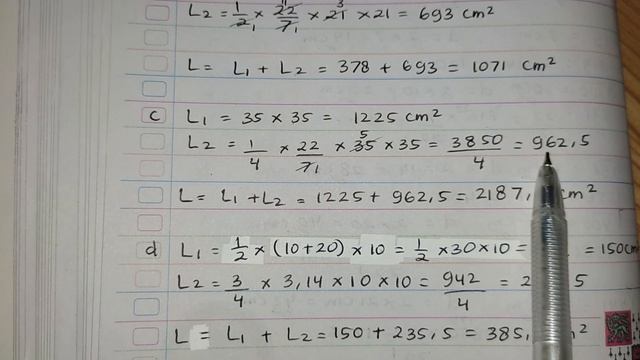 L2 = 1/2 × 22/7 × 21 × 21 = 693 cm²
L = L1 + L2 = 378 + 693 = 1071 cm²
c L1 = 35 × 35 = 1225 cm²
L2 = 1/4 × 22/7 × 35 × 35 = 3850/4 = 962,5
L = L1 + L2 = 1225 + 962,5 = 2187, cm²
d L1 = 1/2 × (10+20) × 10 = 1/2 × 30 × 10 = = 150 cm
L2 = 3/4 × 3,14 × 10 × 10 = 942/4 = 2 5
L = L1 + L2 = 150 + 235,5 = 385, m²